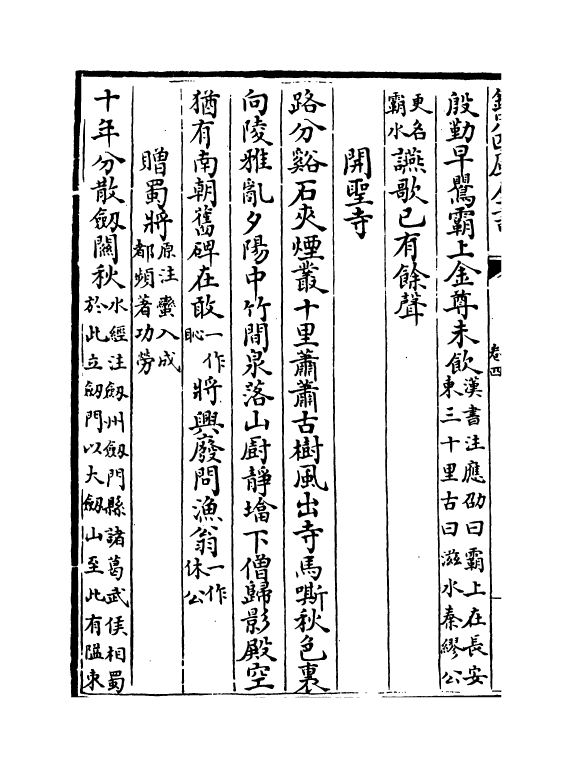 殷勤早鸎霸上金尊未飲漢書注應劭曰霸上在長安東三十里古曰滋水秦繆公
更名霸水讌歌已有餘聲
開聖寺
路分谿石夾煙叢十里蕭蕭古樹風出寺馬嘶秋色裏
向陵雅亂夕陽中竹間泉落山厨静墖下僧歸影殿空
猶有南朝舊碑在敢一作恥將興廢問漁翁一作休公
贈蜀將原注蠻入成都頻著功勞
十年分散劔關秋水經注劔州劔門縣諸葛武侯相蜀於此立劔門以大劔山至此有隘束
卷四